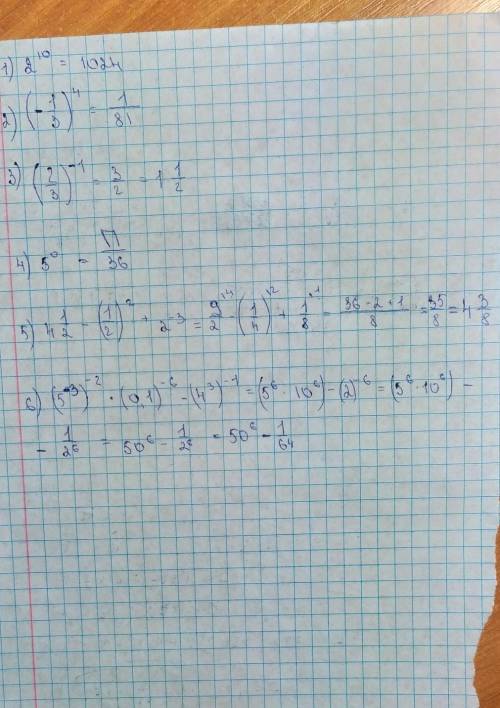 1) 2^10 = 1024
2) (-1/3)^4 = 1/81
3) (2/3)^-1 = 3/2 = 1 1/2
4) 5^0 = П/36
5) 4 1/2 - (1/2)^2 + 2^-3 = 9/2 - (1/4) + 1/8 = 36 - 2 + 1/8 = 35/8 = 4 3/8
6) (5^-3)^-2 · (0,1)^-6 - (4^3)^-1 = (5^6 · 10^6) - (2)^-6 = (5^6 · 10^6) -
- 1/2^6 = 50^6 - 1/2^6 = 50^6 - 1/64